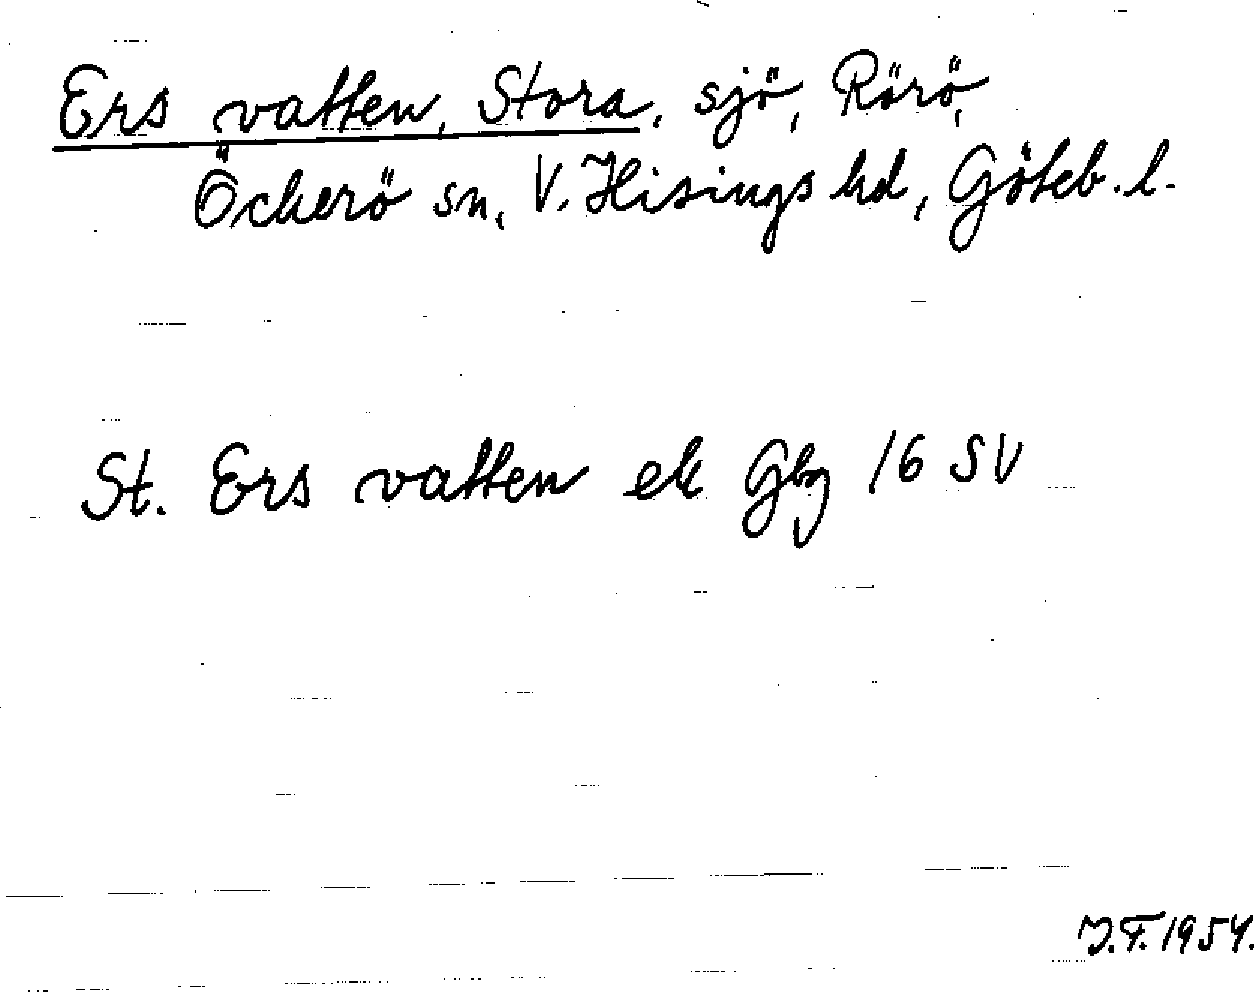 Ers vatten, Stora, sjö, Rörö,
Öckerö sn, V. Hisings hd, Göteb. l.
St. Ers vatten ek Gbg 16 SV
J.F. 1954.